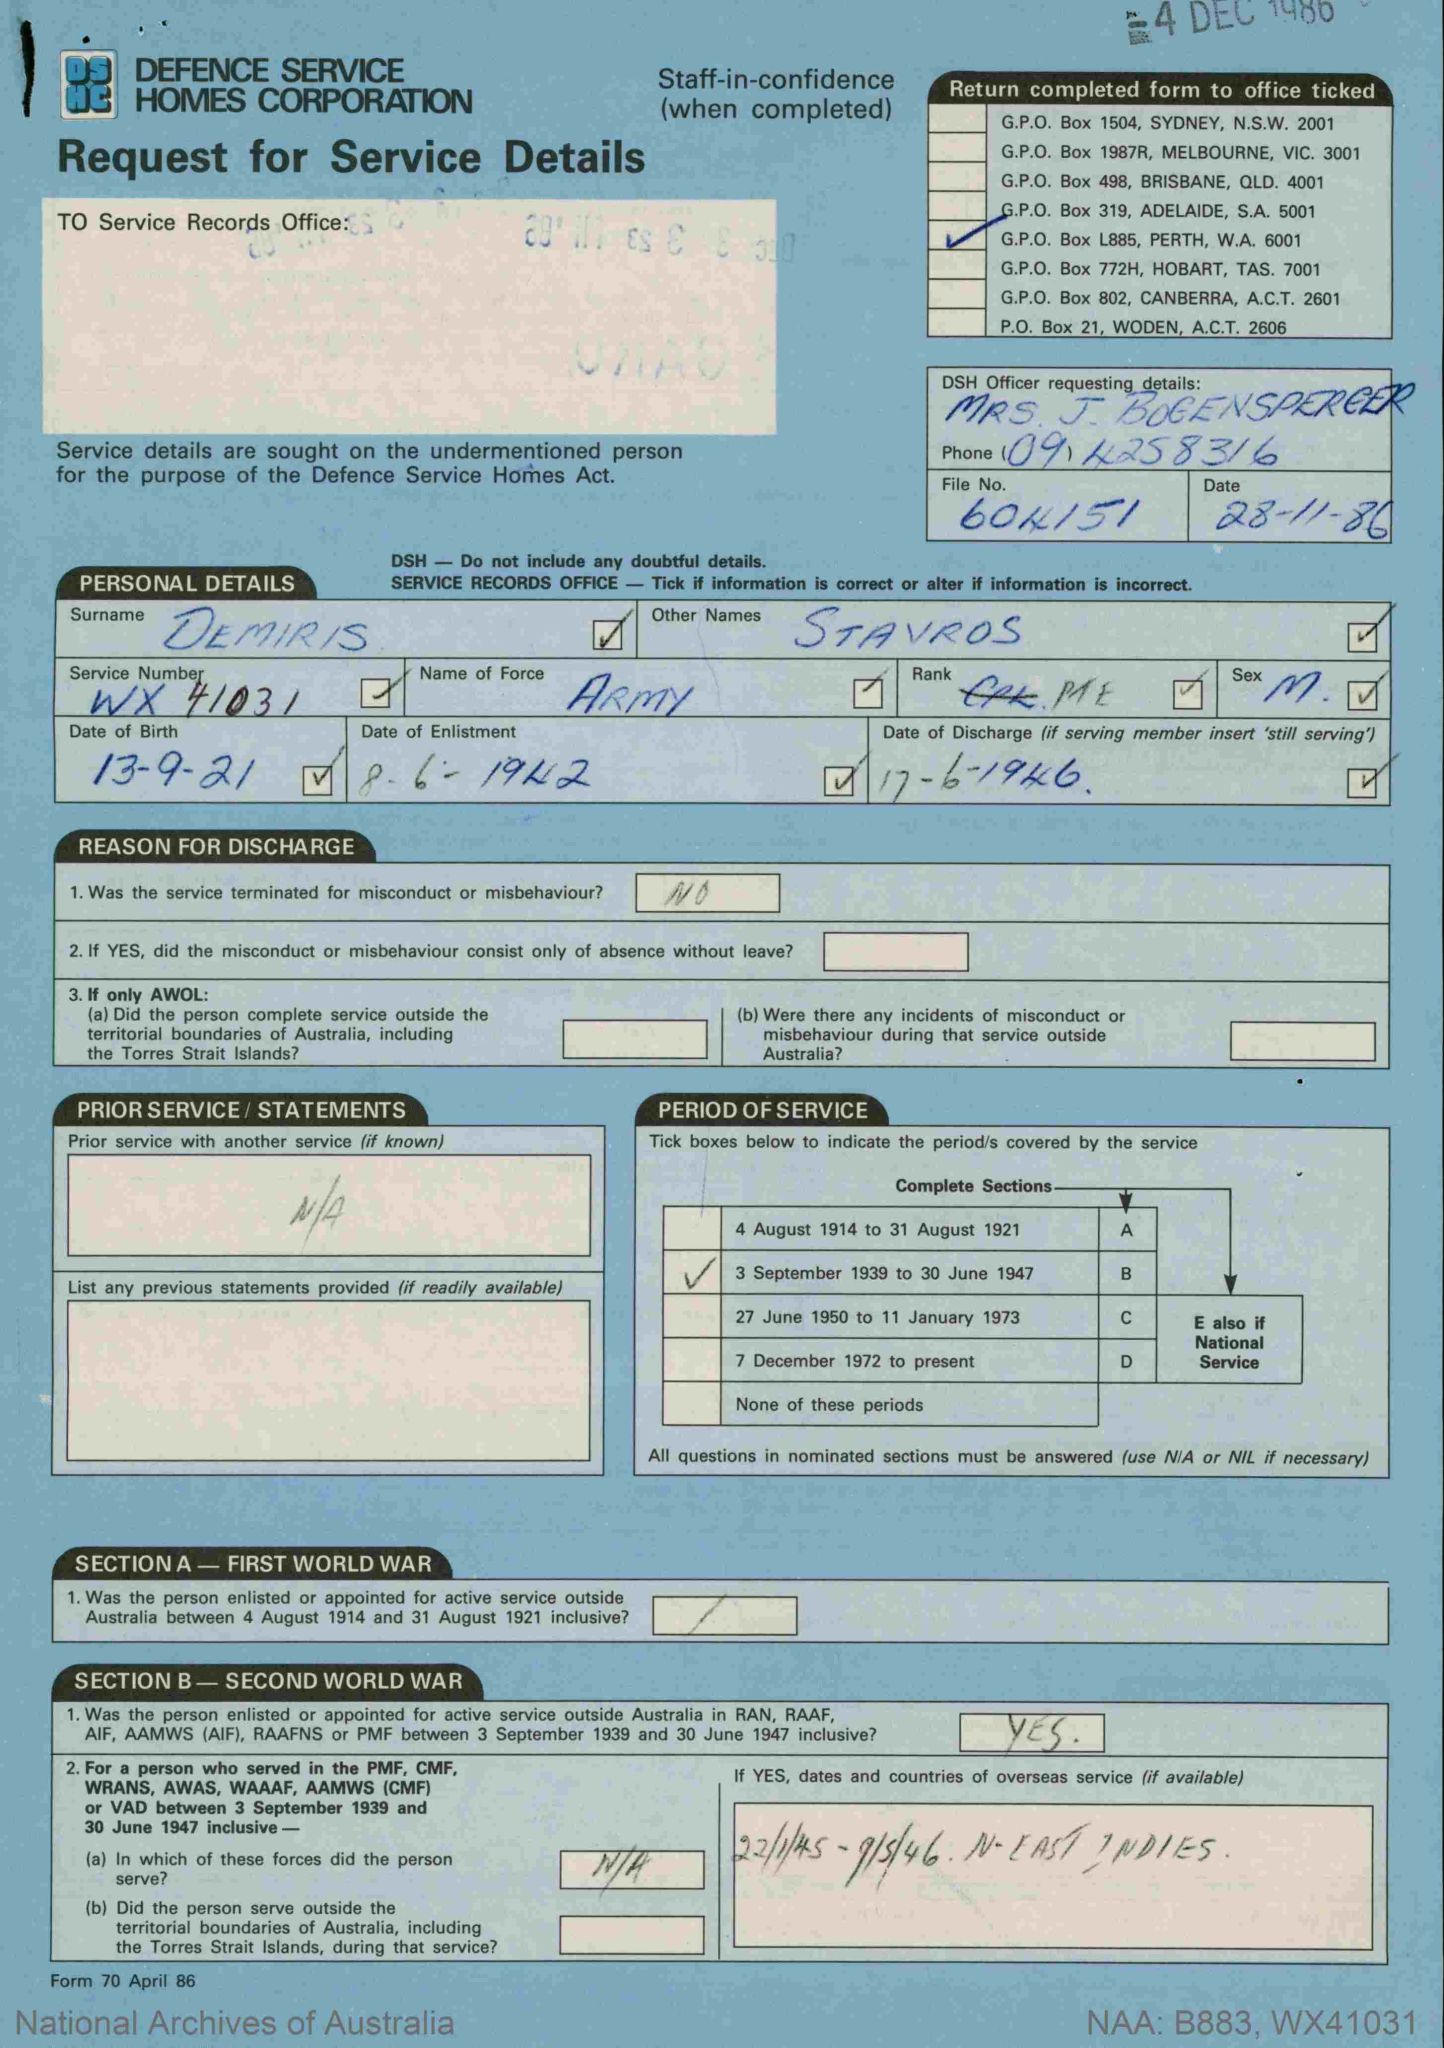 4 DEC 1986
DS
HC
DEFENCE SERVICE
HOMES CORPORATION
Staff-in-confidence
(when completed)
Request for Service Details
Return completed form to office ticked
G.P.O. Box 1504, SYDNEY, N.S.W. 2001
G.P.O. Box 1987R, MELBOURNE, VIC. 3001
G.P.O. Box 498, BRISBANE, QLD. 4001
G.P.O. Box 319, ADELAIDE, S.A. 5001
✓ G.P.O. Box L885, PERTH, W.A. 6001
G.P.O. Box 772H, HOBART, TAS. 7001
G.P.O. Box 802, CANBERRA, A.C.T. 2601
P.O. Box 21, WODEN, A.C.T. 2606
TO Service Records Office:
Service details are sought on the undermentioned person
for the purpose of the Defence Service Homes Act.
DSH Officer requesting details:
MRS. J. BOGENSPERGER
Phone (09) 4258316
File No. Date
604151 28-11-86
DSH — Do not include any doubtful details.
SERVICE RECORDS OFFICE — Tick if information is correct or alter if information is incorrect.
PERSONAL DETAILS
Surname DEMIRIS ✓ Other Names STAVROS ✓
Service Number WX 41031 ✓ Name of Force ARMY ✓ Rank CPL. PTE ✓ Sex M. ✓
Date of Birth Date of Enlistment Date of Discharge (if serving member insert 'still serving')
13-9-21 ✓ 8-6-1942 ✓ 17-6-1946. ✓
REASON FOR DISCHARGE
1. Was the service terminated for misconduct or misbehaviour? NO
2. If YES, did the misconduct or misbehaviour consist only of absence without leave?
3. If only AWOL:
(a) Did the person complete service outside the
territorial boundaries of Australia, including
the Torres Strait Islands?
(b) Were there any incidents of misconduct or
misbehaviour during that service outside
Australia?
PRIOR SERVICE / STATEMENTS
Prior service with another service (if known)
N/A
List any previous statements provided (if readily available)
PERIOD OF SERVICE
Tick boxes below to indicate the period/s covered by the service
Complete Sections
4 August 1914 to 31 August 1921 A
✓ 3 September 1939 to 30 June 1947 B
27 June 1950 to 11 January 1973 C
7 December 1972 to present D
None of these periods
E also if
National
Service
All questions in nominated sections must be answered (use N/A or NIL if necessary)
SECTION A — FIRST WORLD WAR
1. Was the person enlisted or appointed for active service outside
Australia between 4 August 1914 and 31 August 1921 inclusive? /
SECTION B — SECOND WORLD WAR
1. Was the person enlisted or appointed for active service outside Australia in RAN, RAAF,
AIF, AAMWS (AIF), RAAFNS or PMF between 3 September 1939 and 30 June 1947 inclusive? YES.
2. For a person who served in the PMF, CMF,
WRANS, AWAS, WAAAF, AAMWS (CMF)
or VAD between 3 September 1939 and
30 June 1947 inclusive —
(a) In which of these forces did the person
serve? N/A
(b) Did the person serve outside the
territorial boundaries of Australia, including
the Torres Strait Islands, during that service?
If YES, dates and countries of overseas service (if available)
22/1/45 - 9/5/46. N-EAST INDIES.
Form 70 April 86
National Archives of Australia
NAA: B883, WX41031